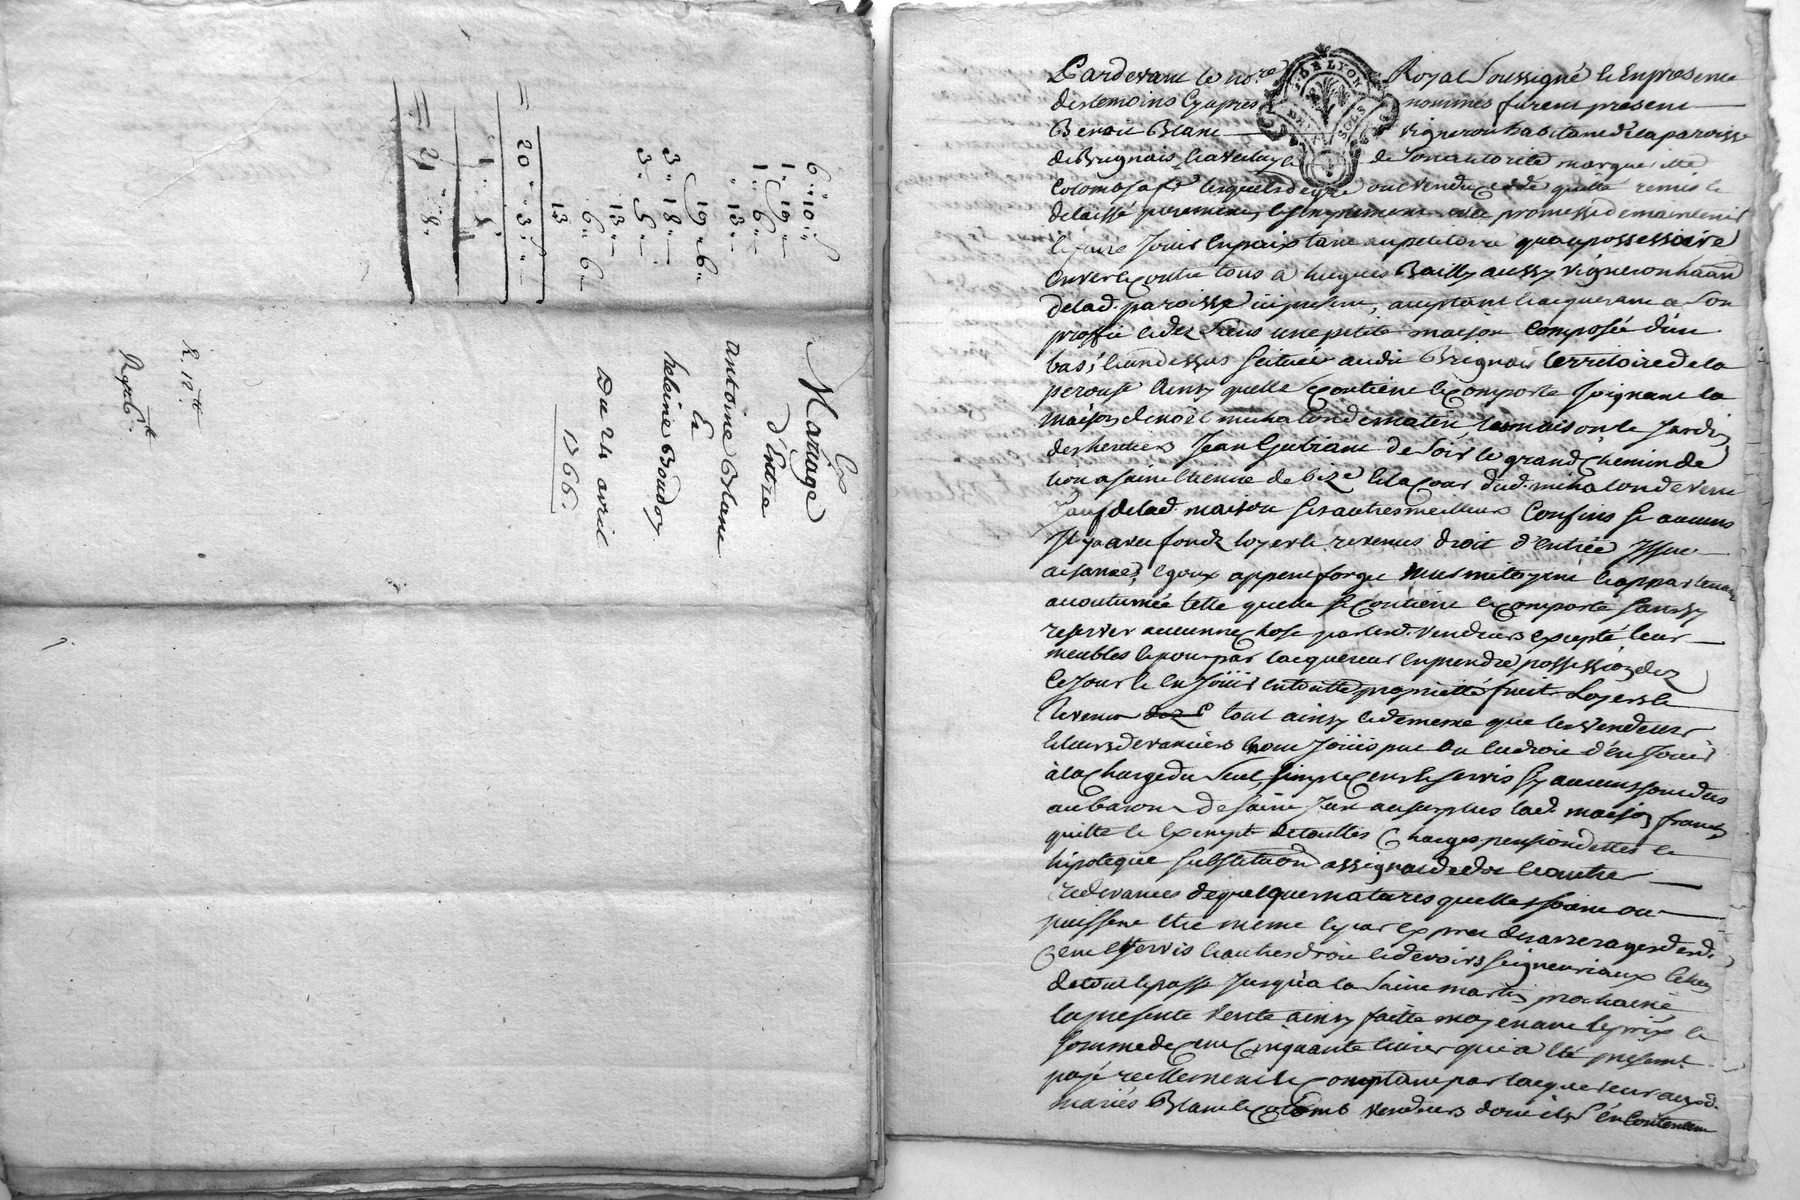 6 " 10 "
1 " 19 "
1 " 6 "
" 13 "
19 " 6
3 " 18 "
3 " 5 "
13 "
6 " 6
13
= 20 " 3
= 21 " 8
Mariage
d'Entre
antoine Blanc
Et
heleine Boudoy
Du 24 avril
1766
R. 12 tt
Pardevant le no.re Royal Soussigné & En presence
des temoins Cy apres nommés furent present
Benoit Blanc vigneron habitant de la paroisse
de Brignais & de Son autorité margueritte
Colomb sa fe lesquels de gré ont vendu cedé quitté remis &
delaissé purement & simplement avec promesse de maintenir
& faire Jouir En paix tant au petitoire qu'au possessoire
Envers & contre tous a hugues Bailly aussy vigneron hant
de lad. paroisse icy present, acceptant & acquerant a Son
proffit & des Siens une petite maison Composée d'un
bas, & un dessus Scituée audit Brignais territoire de la
perouse Ainsy quelle Contient & Comporte Joignant la
maison de noël michalon de matin, la maison & Jardin
des heritiers Jean de Soir le grand Chemin de
lion a saint Etienne de bize & la Cour dud. michalon de vent
Sauf de lad. maison Ses autres meilleurs Confins Si aucuns
Il y a avec fonds loyers & revenus droit d'Entrée Issue
aisances, Egoux mur mitoyens & appartenances
accoutumée telle quelle Se Contient & Comporte Sans sy
reserver aucune Chose par lesd. vendeurs Excepté leurs
meubles & pour par lacquereur En prendre possession dez
Ce Jour & En Jouir En toutte proprietté fruit Loyers &
Revenu tout ainsy & de meme que les vendeurs
& leurs devanciers En ont Jouis pu ou du droit d'En Jouir
à la Charge du Seul Simple Cens & Servis Sy aucuns Sont dus
au baron de Saint Jux au surplus lad. maison franche
quitte & Exempte de touttes Charges pension dettes &
hipoteque Substitution assignat de dot & autres
redevances de quelques natures quelles Soient ou
puissent Etre meme & par Exprez des arrerages desd.
Cens & Servis & autres droit & devoirs Seigneuriaux
de tout le passé Jusqu'a la Saint martin prochaine
la presente vente ainsy faitte moyenant le prix &
Somme de Cent Cinquante livres qui a Eté present.
payé reellement & Comptant par lacquereur auxd.
mariés Blanc & Colomb vendeurs dont ils S'En Contentent